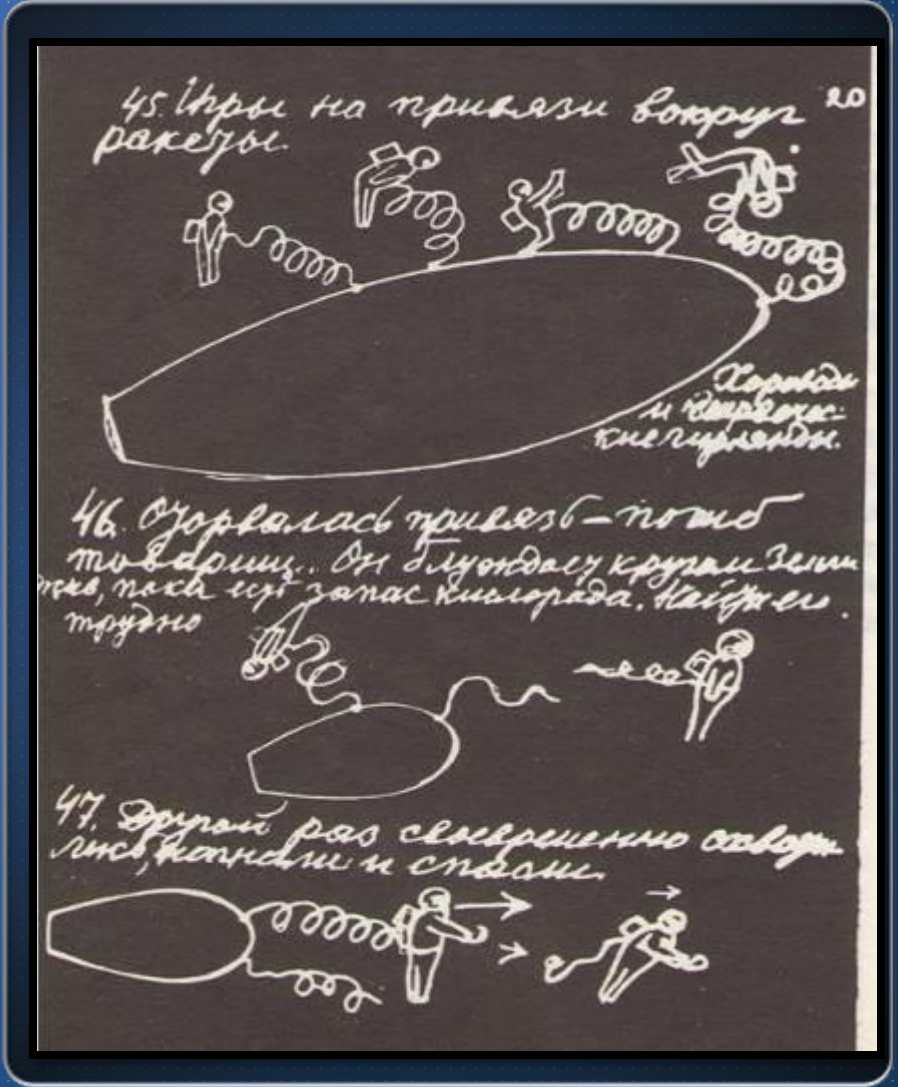 45. Игры на привязи вокруг 20
ракеты.
Хороводы
и человечес-
кие гирлянды.
46. Оторвалась привязь – погиб
товарищ.. Он блуждает кругом Земли
жив, пока есть запас кислорода. Найти его
трудно
47. Другой раз своевременно схвати-
лись, и спасли.